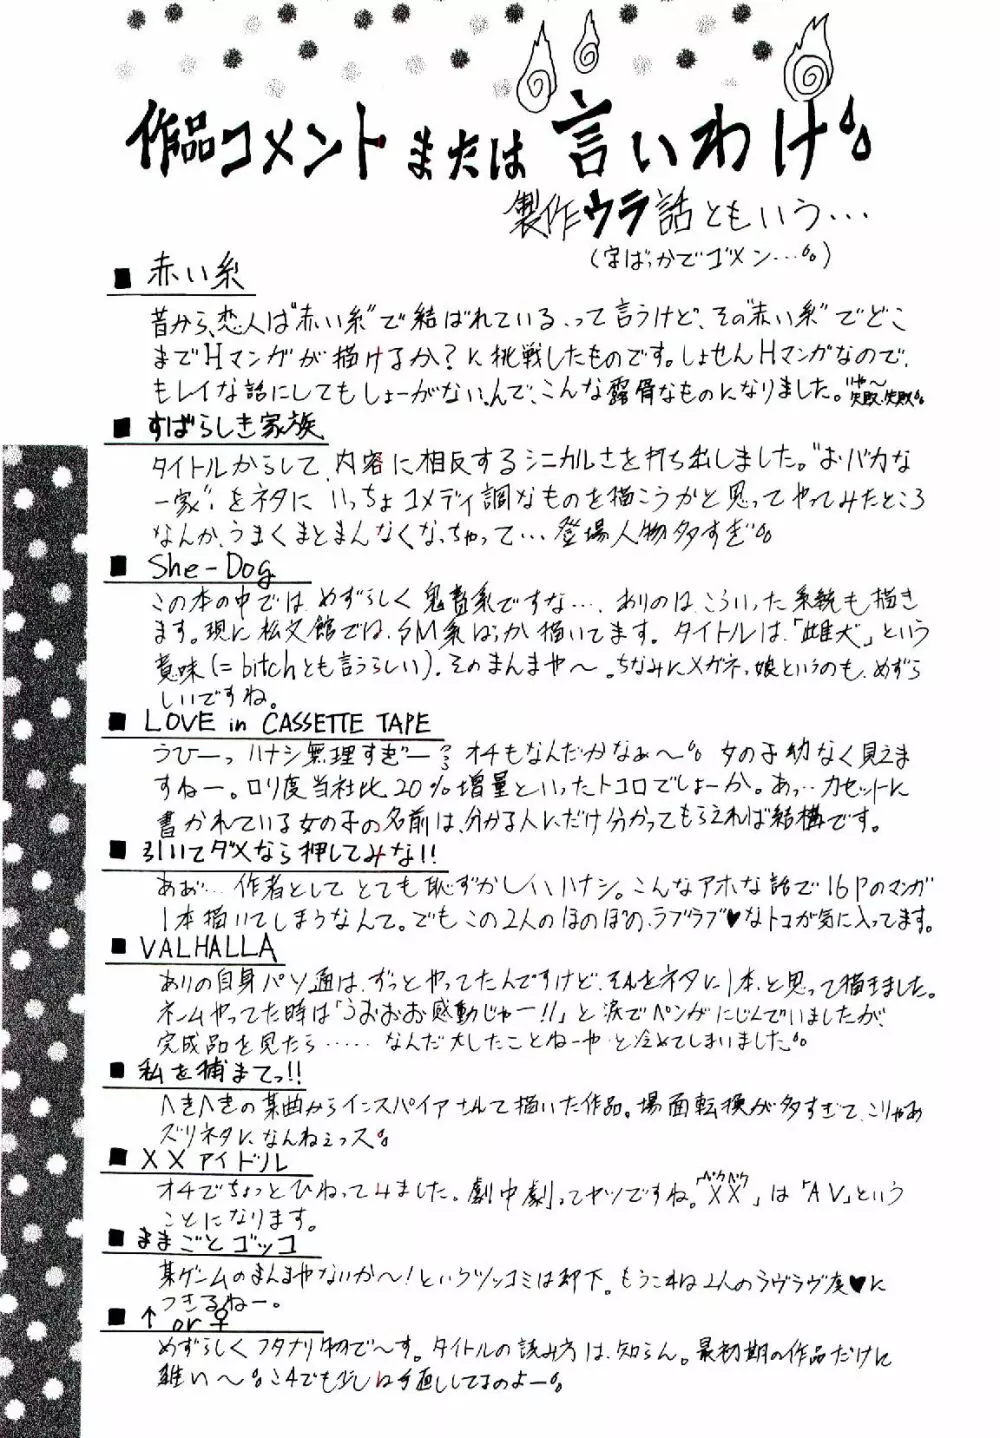 作品コメント または 言いわけ
製作ウラ話ともいう…
(字ばっかでゴメン…)
■ 赤い糸
昔から、恋人は“赤い糸”で結ばれている、って言うけど、その“赤い糸”でどこ
までHマンガが描けるか?に挑戦したものです。しょせんHマンガなので、
キレイな話にしてもしょーがないんで、こんな露骨なものになりました。いや〜失敗、失敗
■ すばらしき家族
タイトルからして、内容に相反するシニカルさを打ち出しました。“おバカな
一家”をネタに いっちょコメディ調なものを描こうかと思ってやってみたところ
なんか、うまくまとまんなくなっちゃって…登場人物多すぎ
■ She-Dog
この本の中では、めずらしく鬼畜系ですな…。ありのは、こういった系統も描き
ます。現に松文館では、SM系ばっか描いてます。タイトルは、「雌犬」という
意味(=bitchとも言うらしい)。そのまんまや〜。ちなみにメガネっ娘というのも、めずら
しいですね。
■ LOVE in CASSETTE TAPE
うひーっ ハナシ無理すぎー? オチもなんだかなぁ〜 女の子幼なく見えま
すねー。ロリ度当社比20%増量といったトコロでしょーか。あっ…カセットに
書かれている女の子の名前は、分かる人にだけ分かってもらえれば結構です。
■ 引いてダメなら押してみな!!
あぁ… 作者として とても恥ずかしいハナシ。こんなアホな話で16Pのマンガ
1本描いてしまうなんて。でもこの2人のほのぼの、ラブラブ♥なトコが気に入ってます。
■ VALHALLA
ありの自身パソ通は、ずっとやってたんですけど、それをネタに1本、と思って描きました。
ネームやってた時は「うおおお感動じゃー!!」と涙でペンがにじんでいましたが、
完成品を見たら…… なんだ大したことねーや と冷めてしまいました。
■ 私を捕まてっ!!
へきへきの某曲からインスパイアされて描いた作品。場面転換が多すぎて、こりゃあ
ズリネタに、なんねぇっス
■ XXアイドル
オチでちょっとひねってみました。劇中劇ってヤツですね。「XX」は「AV」という
ペケペケ
ことになります。
■ ままごとゴッコ
某ゲームのまんまやないか〜!というツッコミは却下。もうこれは2人のラヴラヴ度♥に
つきるねー。
■ ↑or♀
めずらしくフタナリ物で〜す。タイトルの読み方は、知らん。最初期の作品だけに
難い〜 これでも少しは手直ししてるのよー